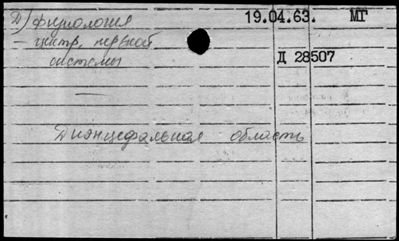 Д) физиология 19.04.63. МГ
– центр. нервной
системы Д 28507
Диэнцефальная область